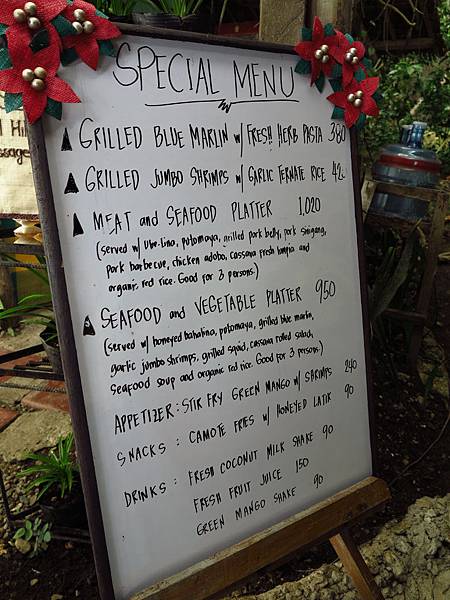 SPECIAL MENU
GRILLED BLUE MARLIN w/ FRESH HERB PASTA 380
GRILLED JUMBO SHRIMPS w/ GARLIC TERNATE RICE
MEAT and SEAFOOD PLATTER 1,020
(served w/ Ube-tino, potomaya, grilled pork belly, pork sinigang,
pork barbecue, chicken adobo, cassava fresh lumpia and
organic red rice. Good for 3 persons.)
SEAFOOD and VEGETABLE PLATTER 950
(served w/ boneyed bahalina, potomaya, grilled blue marlin,
garlic jumbo shrimps, grilled squid, cassava rolled salad,
seafood soup and organic red rice. Good for 3 persons)
APPETIZER: STIR FRY GREEN MANGO w/ SHRIMPS 240
SNACKS : CAMOTE FRIES w/ HONEYED LATIK 90
DRINKS : FRESH COCONUT MILK SHAKE 90
FRESH FRUIT JUICE 150
GREEN MANGO SHAKE 90